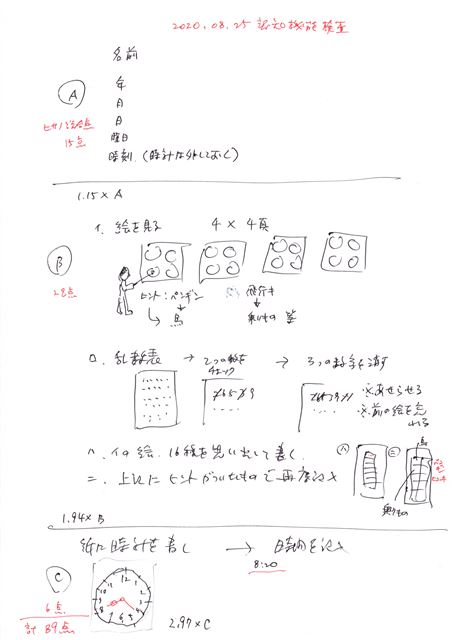 2020.08.25 認知機能検査
名前
年
月
日
曜日
時刻 (時計は外しておく)
A
15点
1.15×A
イ. 絵を見る 4×4頁
B
28点
ヒント:ペンギン
↓
鳥
飛行機
↓
乱数表 → 2つの数を
チェック
→ 3つの数字を消す
※あせらせる
※前の絵を忘
れる
ハ. イの絵. 16種を思い出して書く.
ニ. 上記に ヒントがついたもので再度
1.94×B
紙に時計を書し → 時刻を
8:20
C
12
6点
計 89点
2.97×C